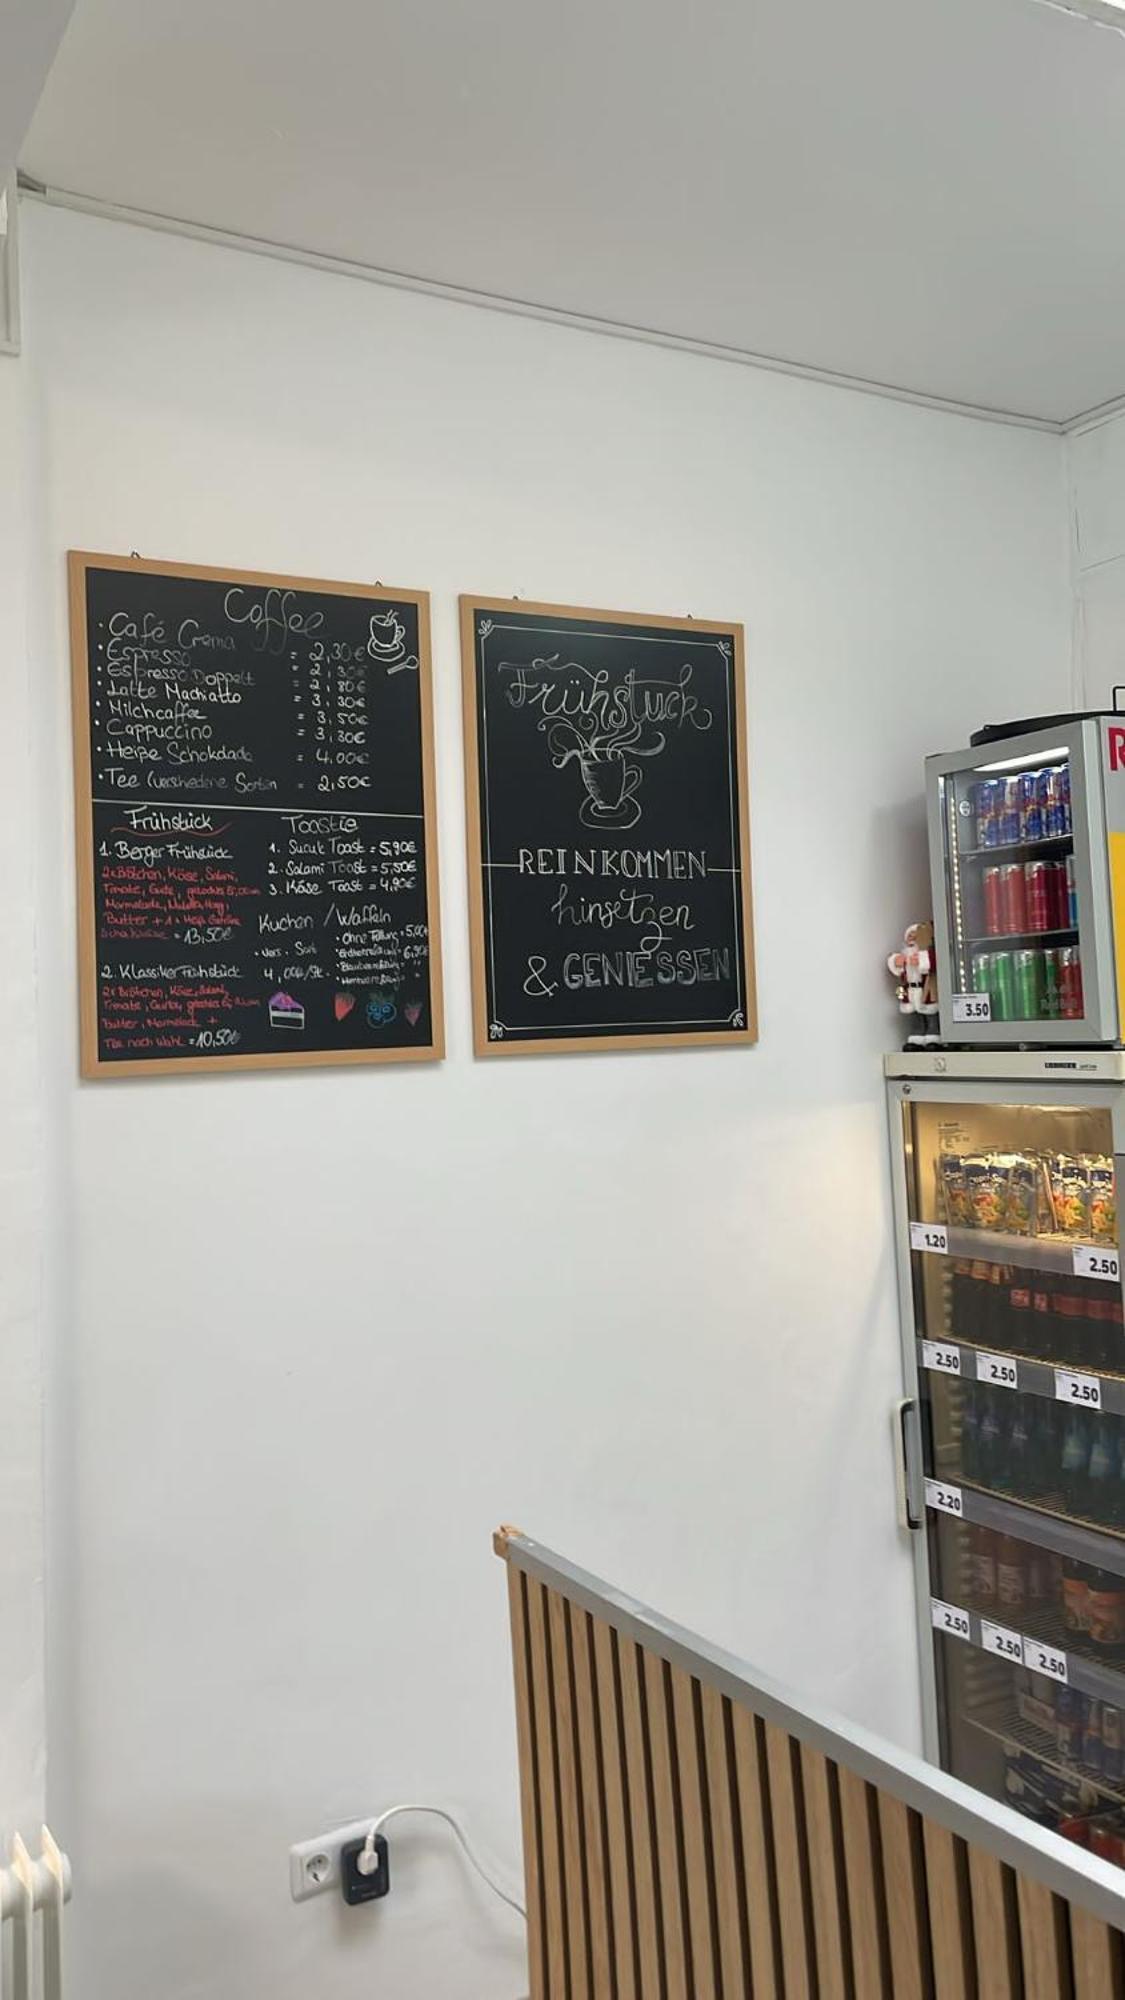 Coffee
• Café Crema = 2,30€
• Espresso = 2,30€
• Espresso Doppelt = 2,80€
• Latte Machiatto = 3,30€
• Milchcaffee = 3,50€
• Cappuccino = 3,30€
• Heiße Schokolade = 4,00€
• Tee (verschiedene Sorten = 2,50€
Frühstück
1. Berger Frühstück
2x Brötchen, Käse, Salami,
Tomate, Gurke, gekochtes Ei,
Marmelade, Nutella, Honig,
Butter + 1x
= 13,50€
2. Klassiker Frühstück
2x Brötchen, Käse, Salami,
Tomate, Gurke, gekochtes Ei,
Butter, Marmelade +
Tee nach Wahl = 10,50€
Toastie
1. Sucuk Toast = 5,90€
2. Salami Toast = 5,50€
3. Käse Toast = 4,90€
Kuchen / Waffeln
• vers. Sort
4,00€/St.
• Ohne Füllung = 5,00€
6,90€
Frühstück
REINKOMMEN
hinsetzen
& GENIESSEN
R
3.50
LIEBHERR
1.20
2.50
2.50
2.50
2.50
2.20
2.50
2.50
2.50